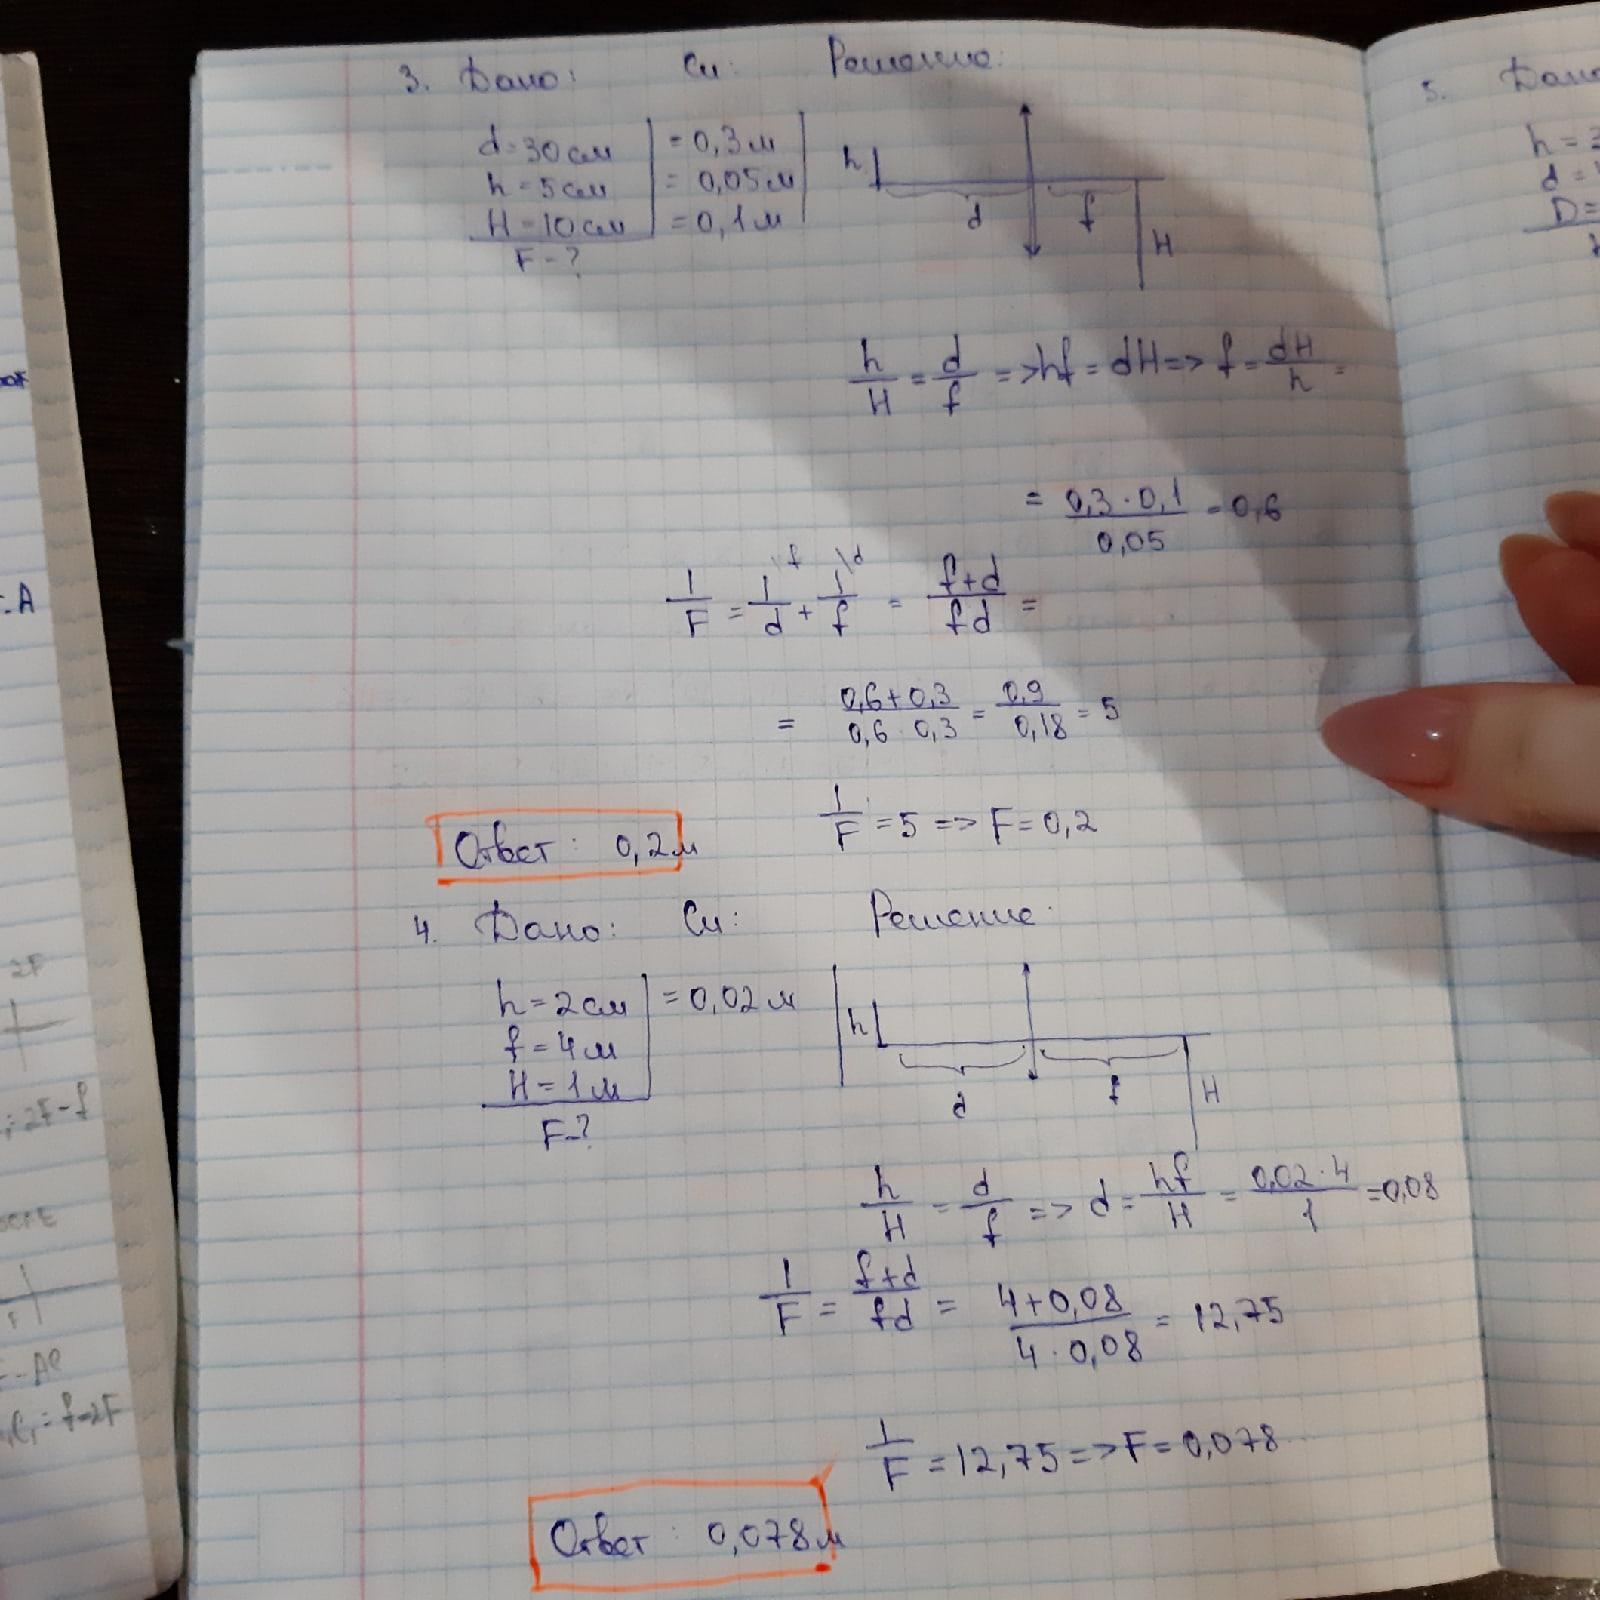 3. Дано: Си: Решение:
d=30см = 0,3м
h=5см = 0,05м
H=10см = 0,1м
F-?
h d f H
h/H = d/f => hf = dH => f = dH/h =
= 0,3·0,1/0,05 = 0,6
\f \d
1/F = 1/d + 1/f = f+d/fd =
= 0,6+0,3/0,6·0,3 = 0,9/0,18 = 5
1/F = 5 => F = 0,2
Ответ: 0,2м
4. Дано: Си: Решение:
h=2см = 0,02м
f=4м
H=1м
F-?
h d f H
h/H = d/f => d = hf/H = 0,02·4/1 = 0,08
1/F = f+d/fd = 4+0,08/4·0,08 = 12,75
1/F = 12,75 => F = 0,078
Ответ: 0,078м
5. Дано
h =
d =
D=
A
2F
2F-f
F
f-2F